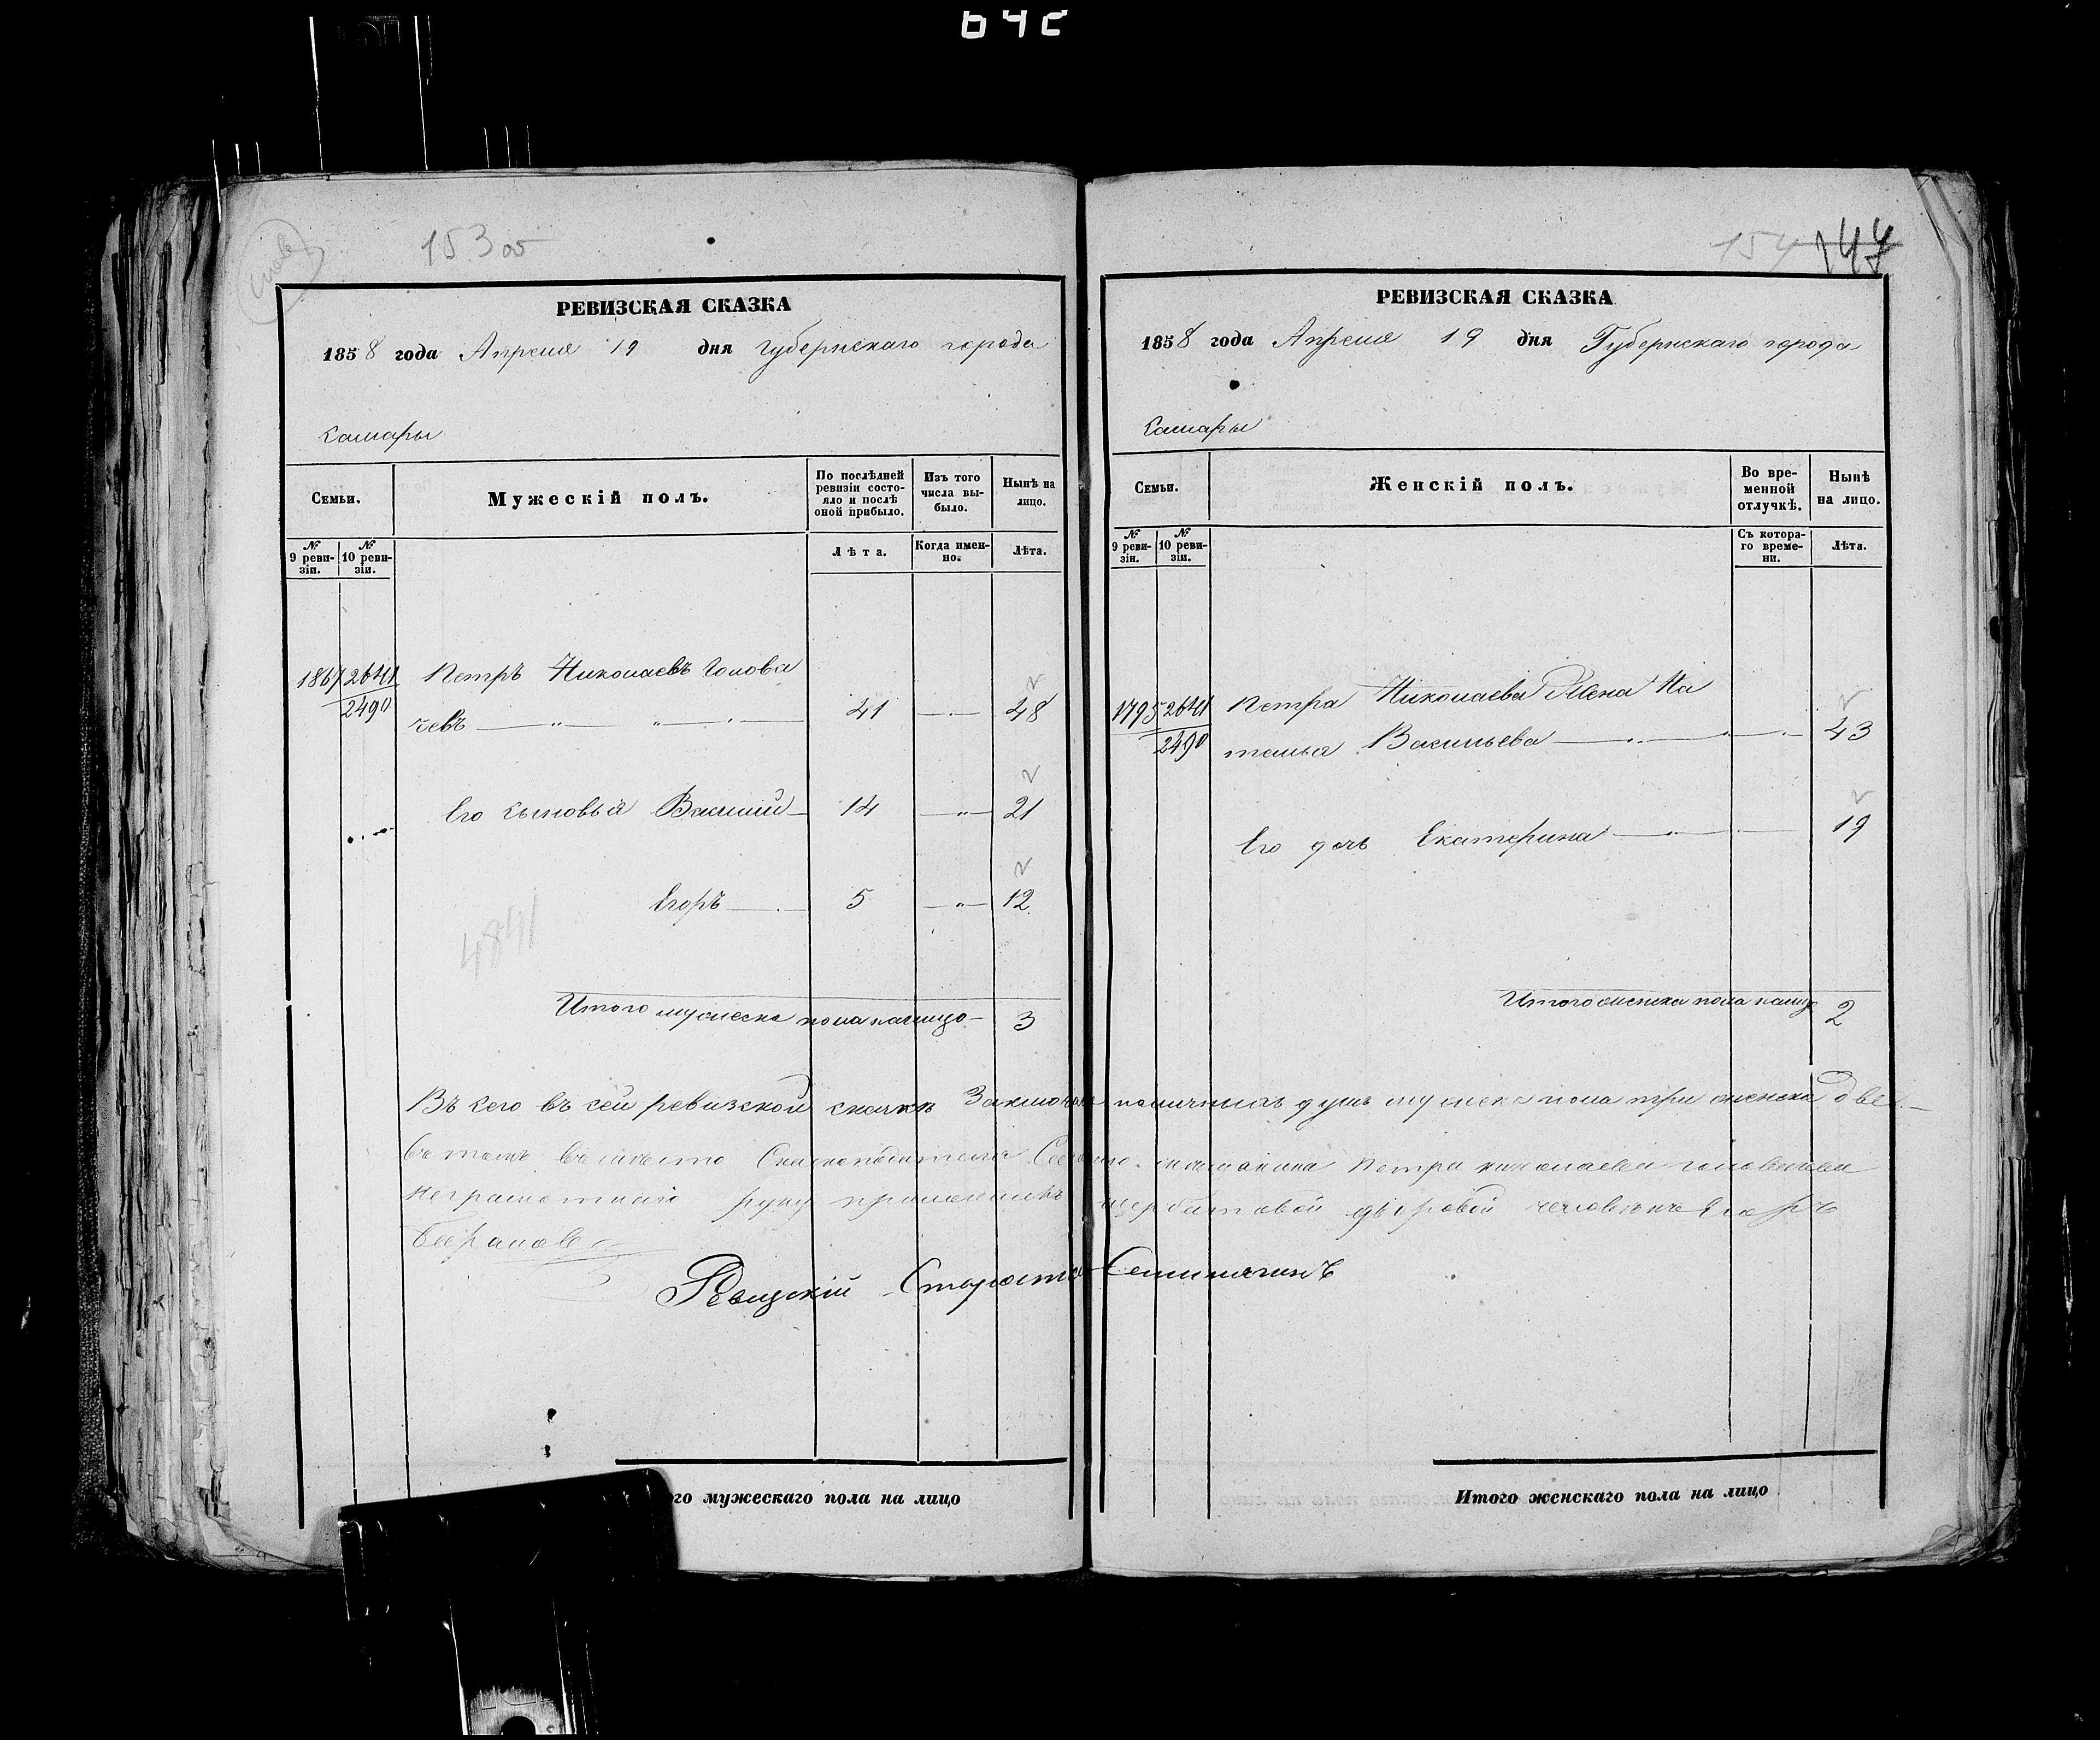 64c
153 об
РЕВИЗСКАЯ СКАЗКА
1858 года Апреля 19 дня Губернскаго города
Самары
Семьи.
Мужескій полъ.
По послѣдней ревизіи состояло и послѣ оной прибыло.
Изъ того числа выбыло.
Нынѣ на лицо.
№ 9 ревизіи.
№ 10 ревизіи.
Лѣта.
Когда именно.
Лѣта.
1867 2641 Петръ Николаевъ Голова
2490 чевъ 41 48
Его сыновья Василий 14 21
Егоръ 5 12
4841
Итого мужеска пола налицо 3
154 147
РЕВИЗСКАЯ СКАЗКА
1858 года Апреля 19 дня Губернскаго города
Самары
Семьи.
Женскій полъ.
Во временной отлучкѣ.
Нынѣ на лицо.
№ 9 ревизіи.
№ 10 ревизіи.
Съ котораго времени.
Лѣта.
1795 2641 Петра Николаева Жена На
2490 талья Васильева 43
Его дочь Екатерина 19
Итого женска пола налицо 2
Въ сего въ сей ревизской сказке наличныхъ душъ мужеска пола три женска две
в томъ вместо Сказкоподателя мещанина Петра николаева головачева
неграмотнаго руку приложилъ дворовой человекъ Егоръ
Баранов
Староста
го мужескаго пола на лицо
Итого женскаго пола на лицо